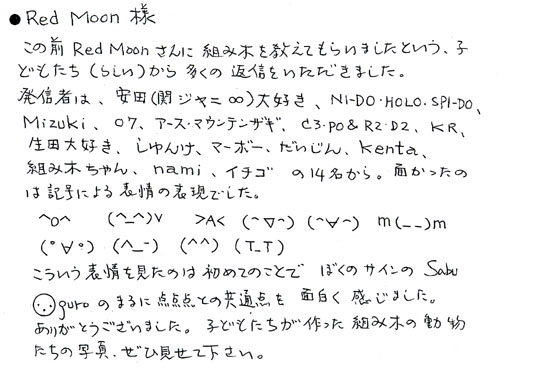 ●Red Moon 様
この前 Red Moonさんに 組み木を教えてもらいましたという、子
どもたち(らしい)から 多くの 返信をいただきました。
発信者は、安田(関ジャニ∞)大好き、NI-DO・HOLO・SPI-DO、
Mizuki、07、アース・マウンテンザギ、C3・PO&R2・D2、KR、
生田大好き、しゅんけ、マーボー、だいじん、Kenta、
組み木ちゃん、nami、イチゴ の14名から。面かったの
は記号による表情の表現でした。
^o^ (^_^)v >A< (^▽^) (^∀^) m(__)m
(°∀°) (^_-) (^^) (T_T)
こういう表情を見たのは初めてのことで ぼくのサインの Sabu
guro のまるに点点点との共通点を 面白く 感じました。
ありがとうございました。子どもたちが作った組み木の動物
たちの写真、ぜひ見せて下さい。